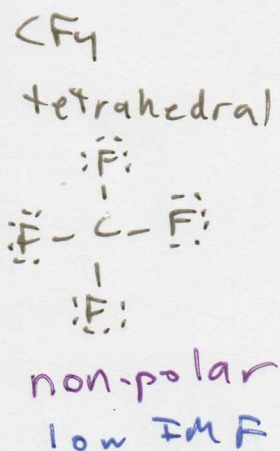 CF4
tetrahedral
F
F - C - F
F
non-polar
low IMF